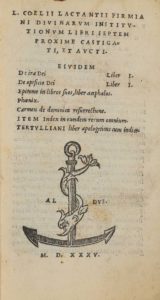 L. COELII LACTANTII FIRMIA
NI DIVINARVM INSTITV-
TIONVM LIBRI SEPTEM
PROXIME CASTIGA
TI, ET AVCTI.
EIVSDEM
De ira Dei Liber I.
De opificio Dei Liber I.
Epitome in libros suos, liber acephalos.
Phœnix.
Carmen de dominica resurrectione.
ITEM Index in eundem rerum omnium.
TERTVLLIANI liber apologeticus cum indice.
AL DVS.
M. D. XXXV.